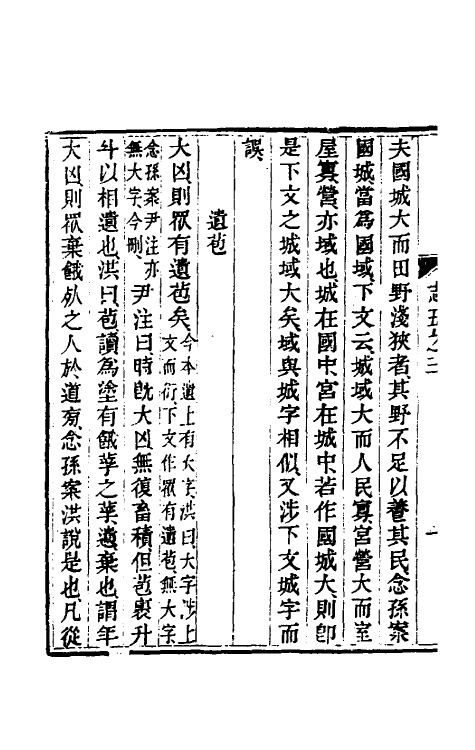 夫國城大而田野淺狹者其野不足以養其民念孫案
國城當爲國域下文云城域大而人民寡宮營大而室
屋寡營亦域也城在國中宮在城中若作國城大則卽
是下文之城域大矣域與城字相似又涉下文城字而
誤
遺苞
大凶則眾有遺苞矣今本遺上有大字洪曰大字涉上
文而衍下文作眾有遺苞無大字
念孫案尹注亦
無大字今刪尹注曰時旣大凶無復畜積但苞裹升
斗以相遺也洪曰苞讀爲塗有餓莩之莩遺棄也謂年
大凶則眾棄餓夗之人於道旁念孫案洪說是也凡從
志五之二
一